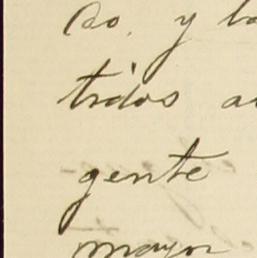 do, y
tidos
gente
mayor